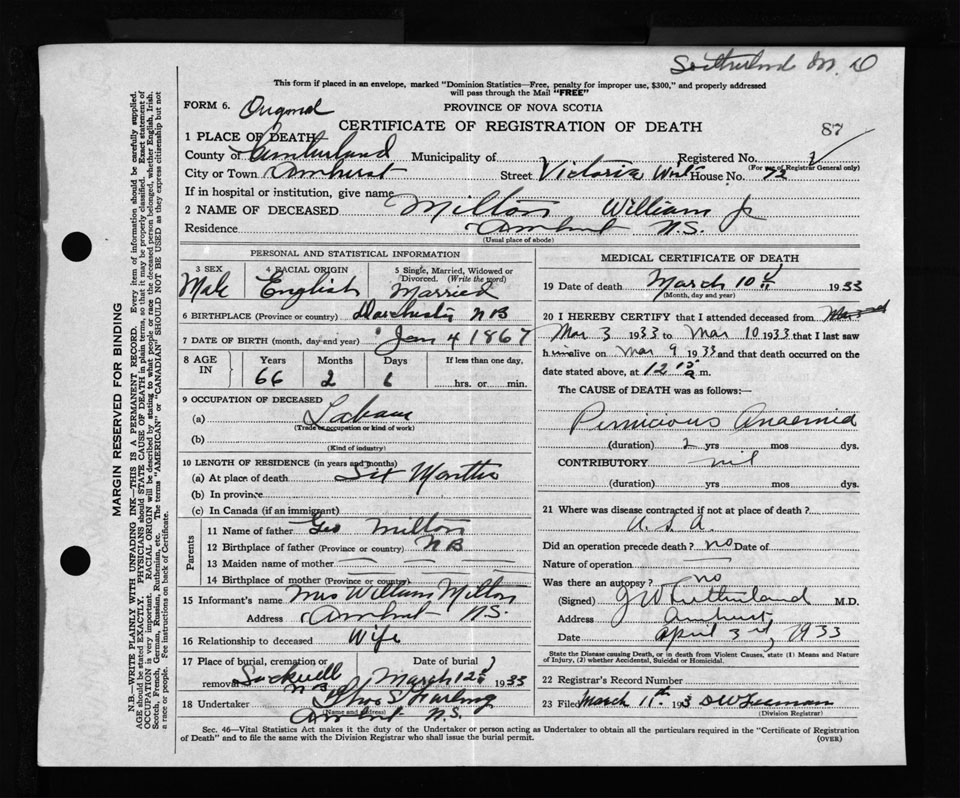 Sutherland M.D
This form if placed in an envelope, marked "Dominion Statistics—Free, penalty for improper use, $300," and properly addressed
will pass through the Mail "FREE"
FORM 6. PROVINCE OF NOVA SCOTIA
CERTIFICATE OF REGISTRATION OF DEATH
87
1 PLACE OF DEATH
County of Cumberland Municipality of Registered No.
(For use of Registrar General only)
City or Town Amherst Street Victoria West House No. 72
If in hospital or institution, give name
2 NAME OF DECEASED Milton William Jr
Residence Amherst N.S.
(Usual place of abode)
PERSONAL AND STATISTICAL INFORMATION
3 SEX Male
4 RACIAL ORIGIN English
5 Single, Married, Widowed or Divorced. (Write the word) Married
6 BIRTHPLACE (Province or country) Dorchester N B
7 DATE OF BIRTH (month, day and year) Jan 4 1867
8 AGE IN Years Months Days If less than one day,
66 2 6 hrs. or min.
9 OCCUPATION OF DECEASED
(a) Labour
(Trade occupation or kind of work)
(b)
(Kind of industry)
10 LENGTH OF RESIDENCE (in years and months)
(a) At place of death Six Months
(b) In province
(c) In Canada (if an immigrant)
Parents
11 Name of father Geo Milton
12 Birthplace of father (Province or country) N B
13 Maiden name of mother — — —
14 Birthplace of mother (Province or country) — — —
15 Informant's name Mrs William Milton
Address Amherst N.S.
16 Relationship to deceased Wife
17 Place of burial, cremation or removal Sackville N B
Date of burial March 12 1933
18 Undertaker
(Name and address)
Amherst N.S.
MEDICAL CERTIFICATE OF DEATH
19 Date of death March 10 1933
(Month, day and year)
20 I HEREBY CERTIFY that I attended deceased from
Mar 3 1933 to Mar 10 1933 that I last saw
him alive on Mar 9 1933 and that death occurred on the
date stated above, at 12 15 a m.
The CAUSE OF DEATH was as follows:—
Pernicious Anaemia
(duration) 2 yrs mos dys.
CONTRIBUTORY nil
(duration) yrs mos dys.
21 Where was disease contracted if not at place of death?
U.S.A.
Did an operation precede death? no Date of
Nature of operation —
Was there an autopsy? no
(Signed) J W Sutherland M.D.
Address Amherst,
Date April 3rd, 1933
State the Disease causing Death, or in death from Violent Causes, state (1) Means and Nature
of Injury, (2) whether Accidental, Suicidal or Homicidal.
22 Registrar's Record Number
23 Filed March 11th 193 3
(Division Registrar)
Sec. 46—Vital Statistics Act makes it the duty of the Undertaker or person acting as Undertaker to obtain all the particulars required in the "Certificate of Registration
of Death" and to file the same with the Division Registrar who shall issue the burial permit.
(OVER)
MARGIN RESERVED FOR BINDING
N.B.—WRITE PLAINLY WITH UNFADING INK—THIS IS A PERMANENT RECORD. Every item of information should be carefully supplied.
AGE should be stated EXACTLY. PHYSICIANS should STATE CAUSE OF DEATH in plain terms, so that it may be properly classified. Exact statement of
OCCUPATION is very important. RACIAL ORIGIN will be described by stating to what people or race the deceased person belonged, whether English, Irish,
Scotch, French, German, Russian, Ruthenian, etc. The terms "AMERICAN" or "CANADIAN" SHOULD NOT BE USED as they express citizenship but not
a race or people. Fee instructions on back of Certificate.